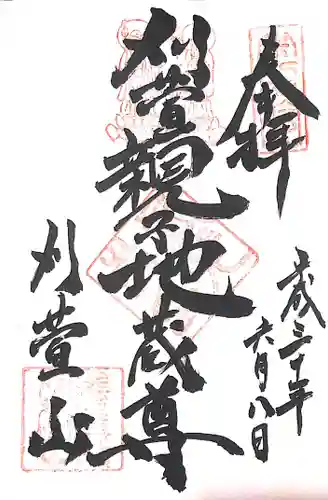 奉拝
成三十年
六月八日
刈萱親子地蔵尊
刈萱山